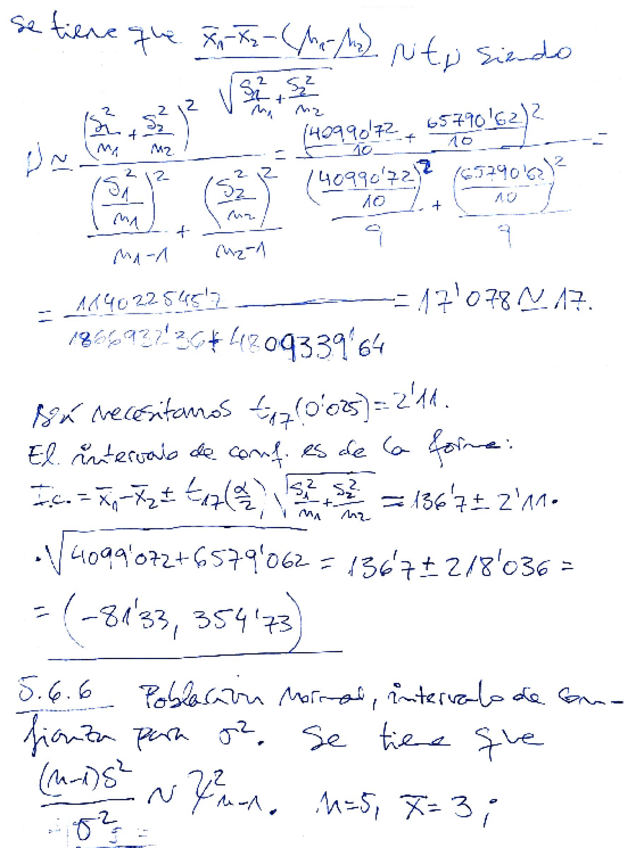 Se tiene que (x̄₁-x̄₂-(μ₁-μ₂))/√(S₁²/n₁+S₂²/n₂) ~ t_ν siendo
ν ≃ (S₁²/n₁+S₂²/n₂)²/((S₁²/n₁)²/(n₁-1)+(S₂²/n₂)²/(n₂-1)) = (40990'72/10+65790'62/10)²/((40990'72/10)²/9+(65790'62/10)²/9) =
= 114022545'7/(1866932'36+4809339'64) = 17'078 ≃ 17.
Así necesitamos t₁₇(0'025)=2'11.
El intervalo de conf. es de la forma:
I.c. = x̄₁-x̄₂ ± t₁₇(α/2) √(S₁²/n₁+S₂²/n₂) = 136'7 ± 2'11·
·√(4099'072+6579'062) = 136'7 ± 218'036 =
= (-81'33, 354'73)
5.6.6 Población normal, intervalo de con-
fianza para σ². Se tiene que
(n-1)S²/σ² ~ χ²ₙ₋₁. n=5, x̄=3;